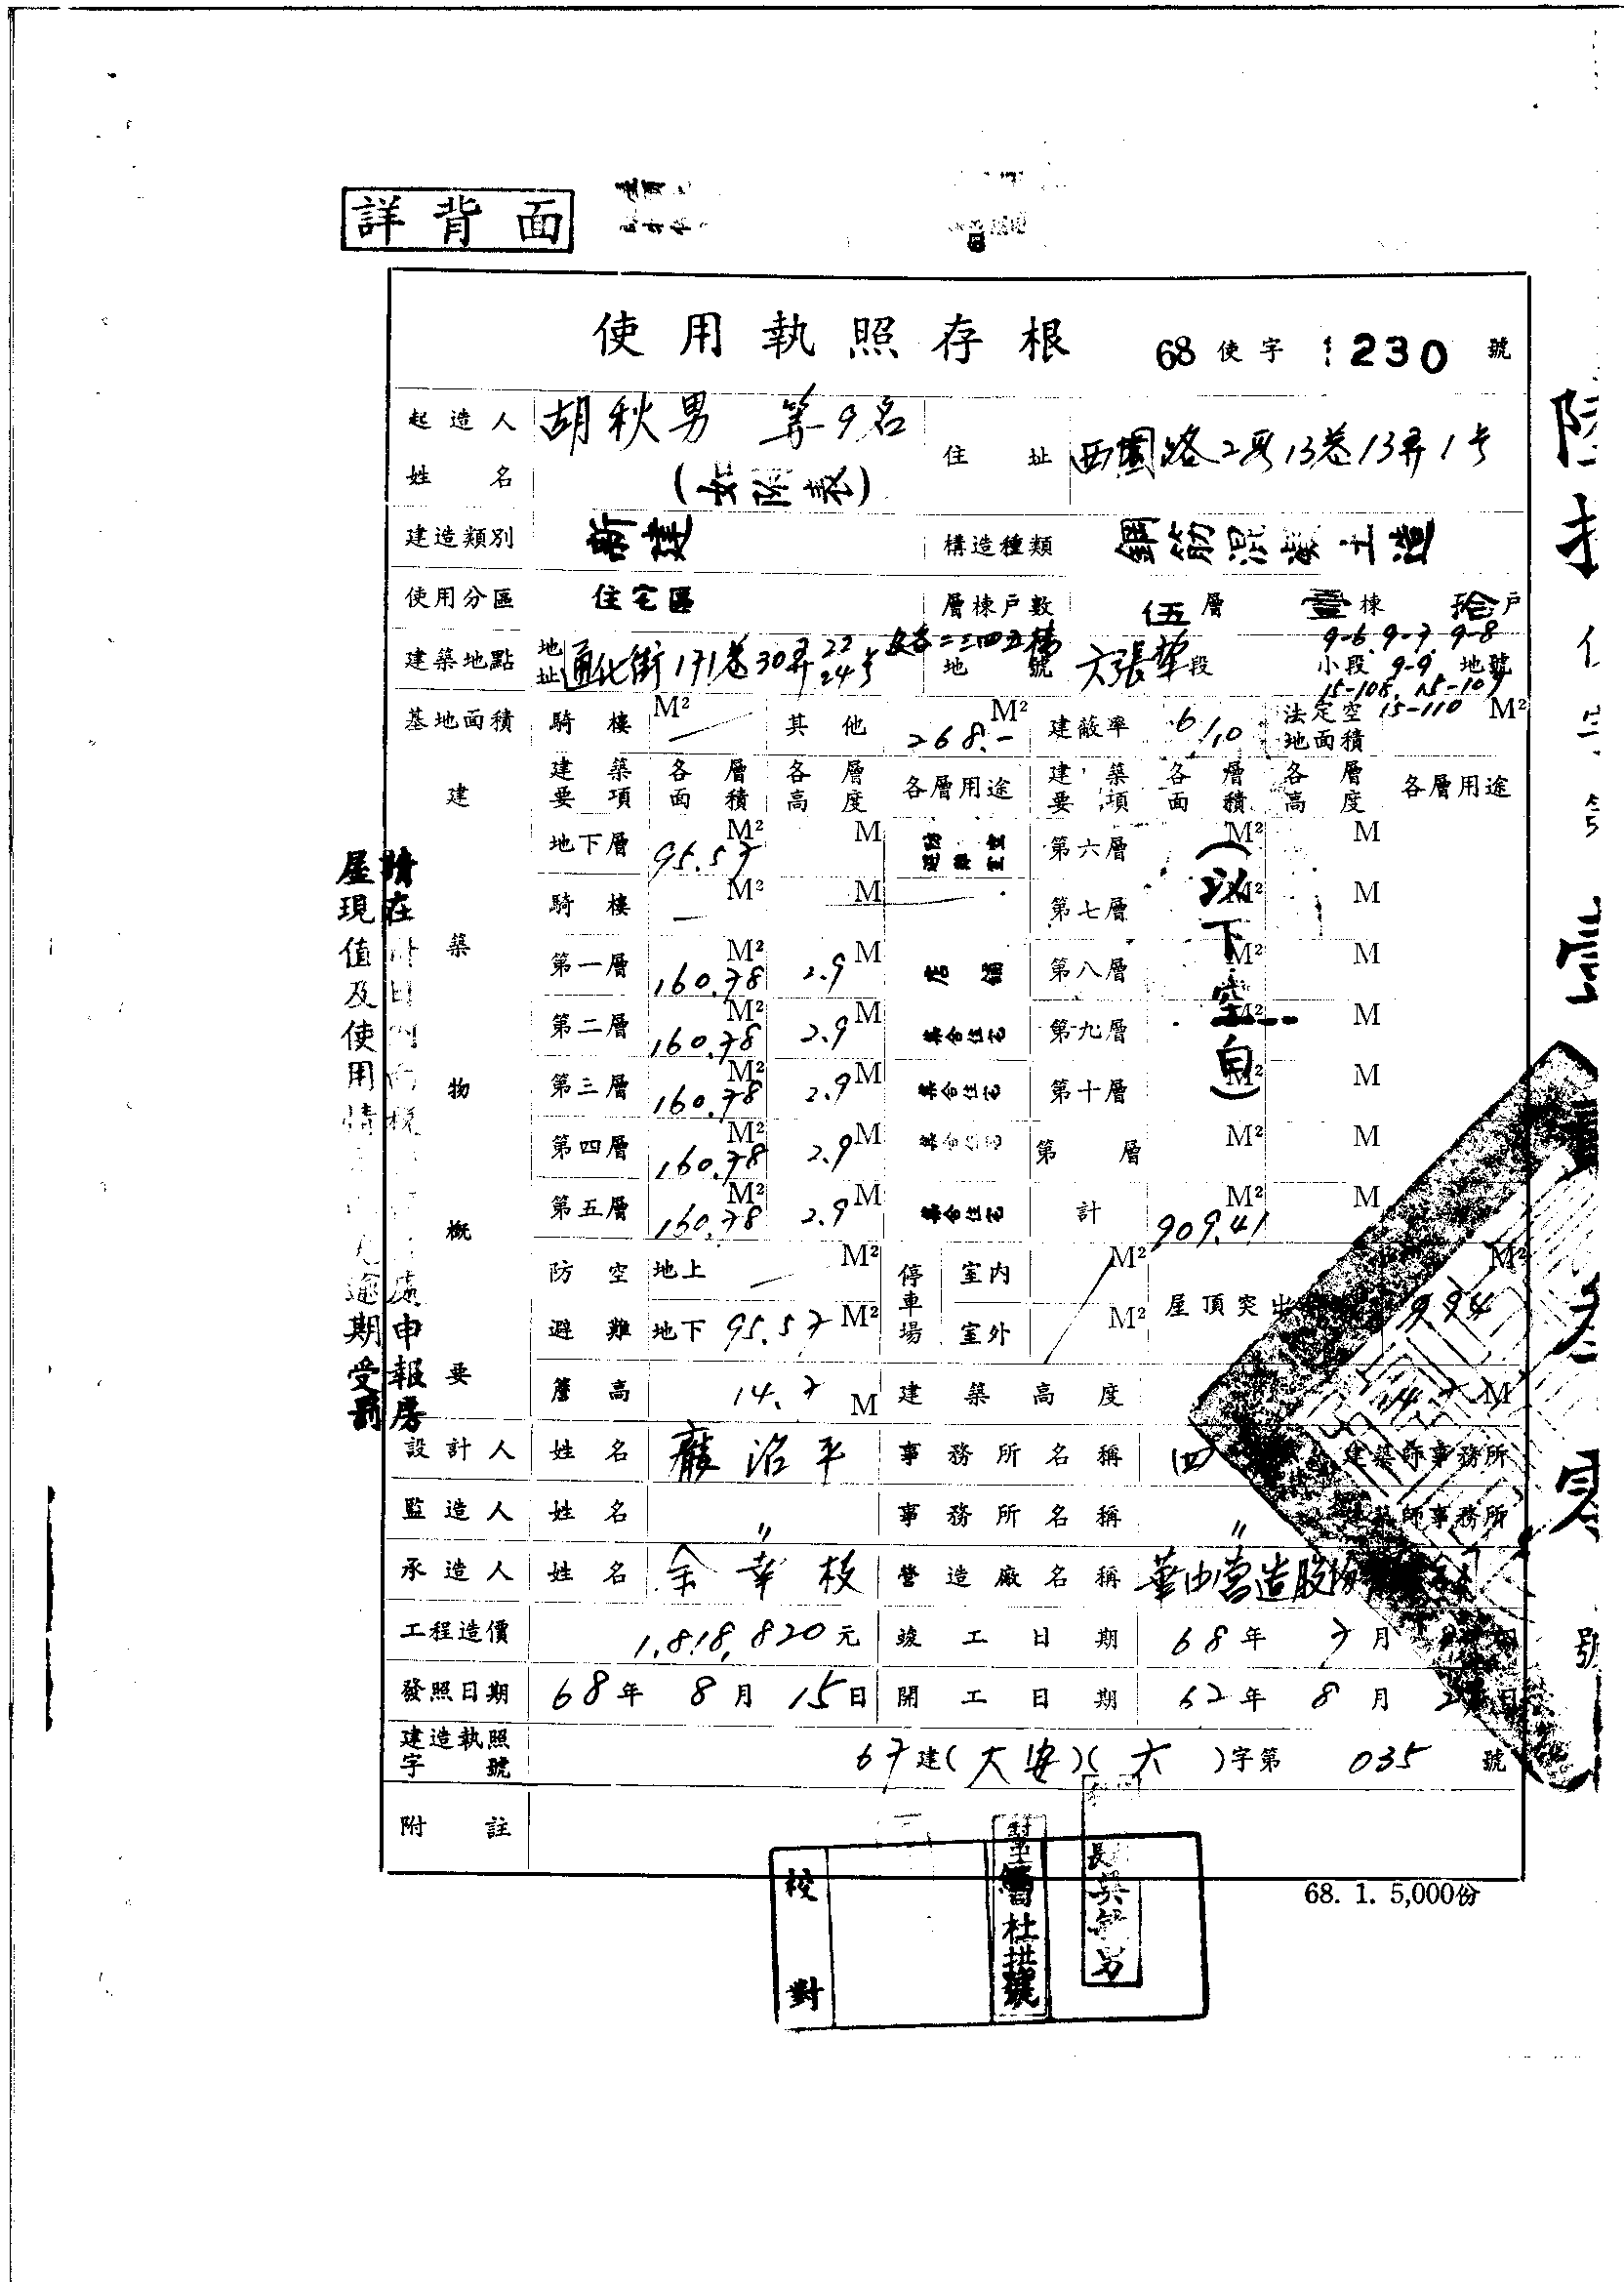 詳背面
使用執照存根 68使字1230號
起造人姓名 胡秋男 等9名 (如附表) 住址 西園路2段13巷13弄1号
建造類別 新建 構造種類 鋼筋混凝土造
使用分區 住宅區 層棟戶數 伍層 壹棟 拾戶
建築地點 地址 通化街171巷30弄22 24号 及各二三四五樓 地號 六張犂段 小段 9-6. 9-7. 9-8 9-9. 15-108. 15-109 15-110 地號
基地面積 騎樓 M² — 其他 268.- M² 建蔽率 6/10 法定空地面積 M²
建築物概要 建築要項 各層面積 各層高度 各層用途 建築要項 各層面積 各層高度 各層用途
地下層 95.57 M² M 第六層 M² M
騎樓 — M² M 第七層 M² M
第一層 160.78 M² 2.9 M 店舖 第八層 M² M
第二層 160.78 M² 2.9 M 集合住宅 第九層 M² M
第三層 160.78 M² 2.9 M 集合住宅 第十層 M² M
第四層 160.78 M² 2.9 M 集合住宅 第 層 M² M
第五層 160.78 M² 2.9 M 集合住宅 計 909.41 M² M
(以下空白)
防空避難 地上 — M² 地下 95.57 M² 停車場 室內 M² 室外 M² 屋頂突出 9.94 M²
簷高 14.7 M 建築高度 14.7 M
設計人 姓名 事務所名稱 建築師事務所
監造人 姓名 〃 事務所名稱 〃 建築師事務所
承造人 姓名 余幸枝 營造廠名稱 華由營造股份
工程造價 1,818,820元 竣工日期 68年7月 日
發照日期 68年8月15日 開工日期 62年8月 日
建造執照字號 67建(大安)(六)字第035號
附註
68. 1. 5,000份
校對
請在
申報房
屋現值及使用情
逾期受罰